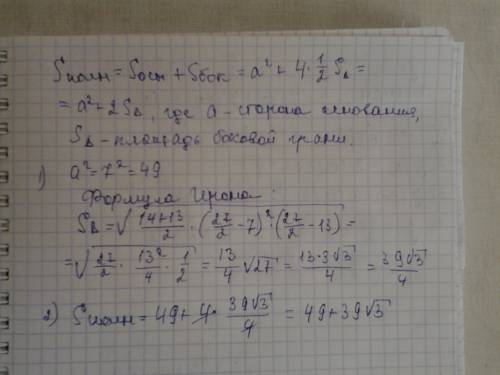 Sполн = Sосн + Sбок = a² + 4 · 1/2 S△ =
= a² + 2S△, где a - сторона основания,
S△ - площадь боковой грани.
1) a² = 7² = 49
Формула Герона
S△ = √(14+13/2 · (27/2 - 7)² · (27/2 - 13)) =
= √(27/2 · 13²/4 · 1/2) = 13/4 √27 = 13·3√3/4 = 39√3/4
2) Sполн = 49 + 4 · 39√3/4 = 49 + 39√3